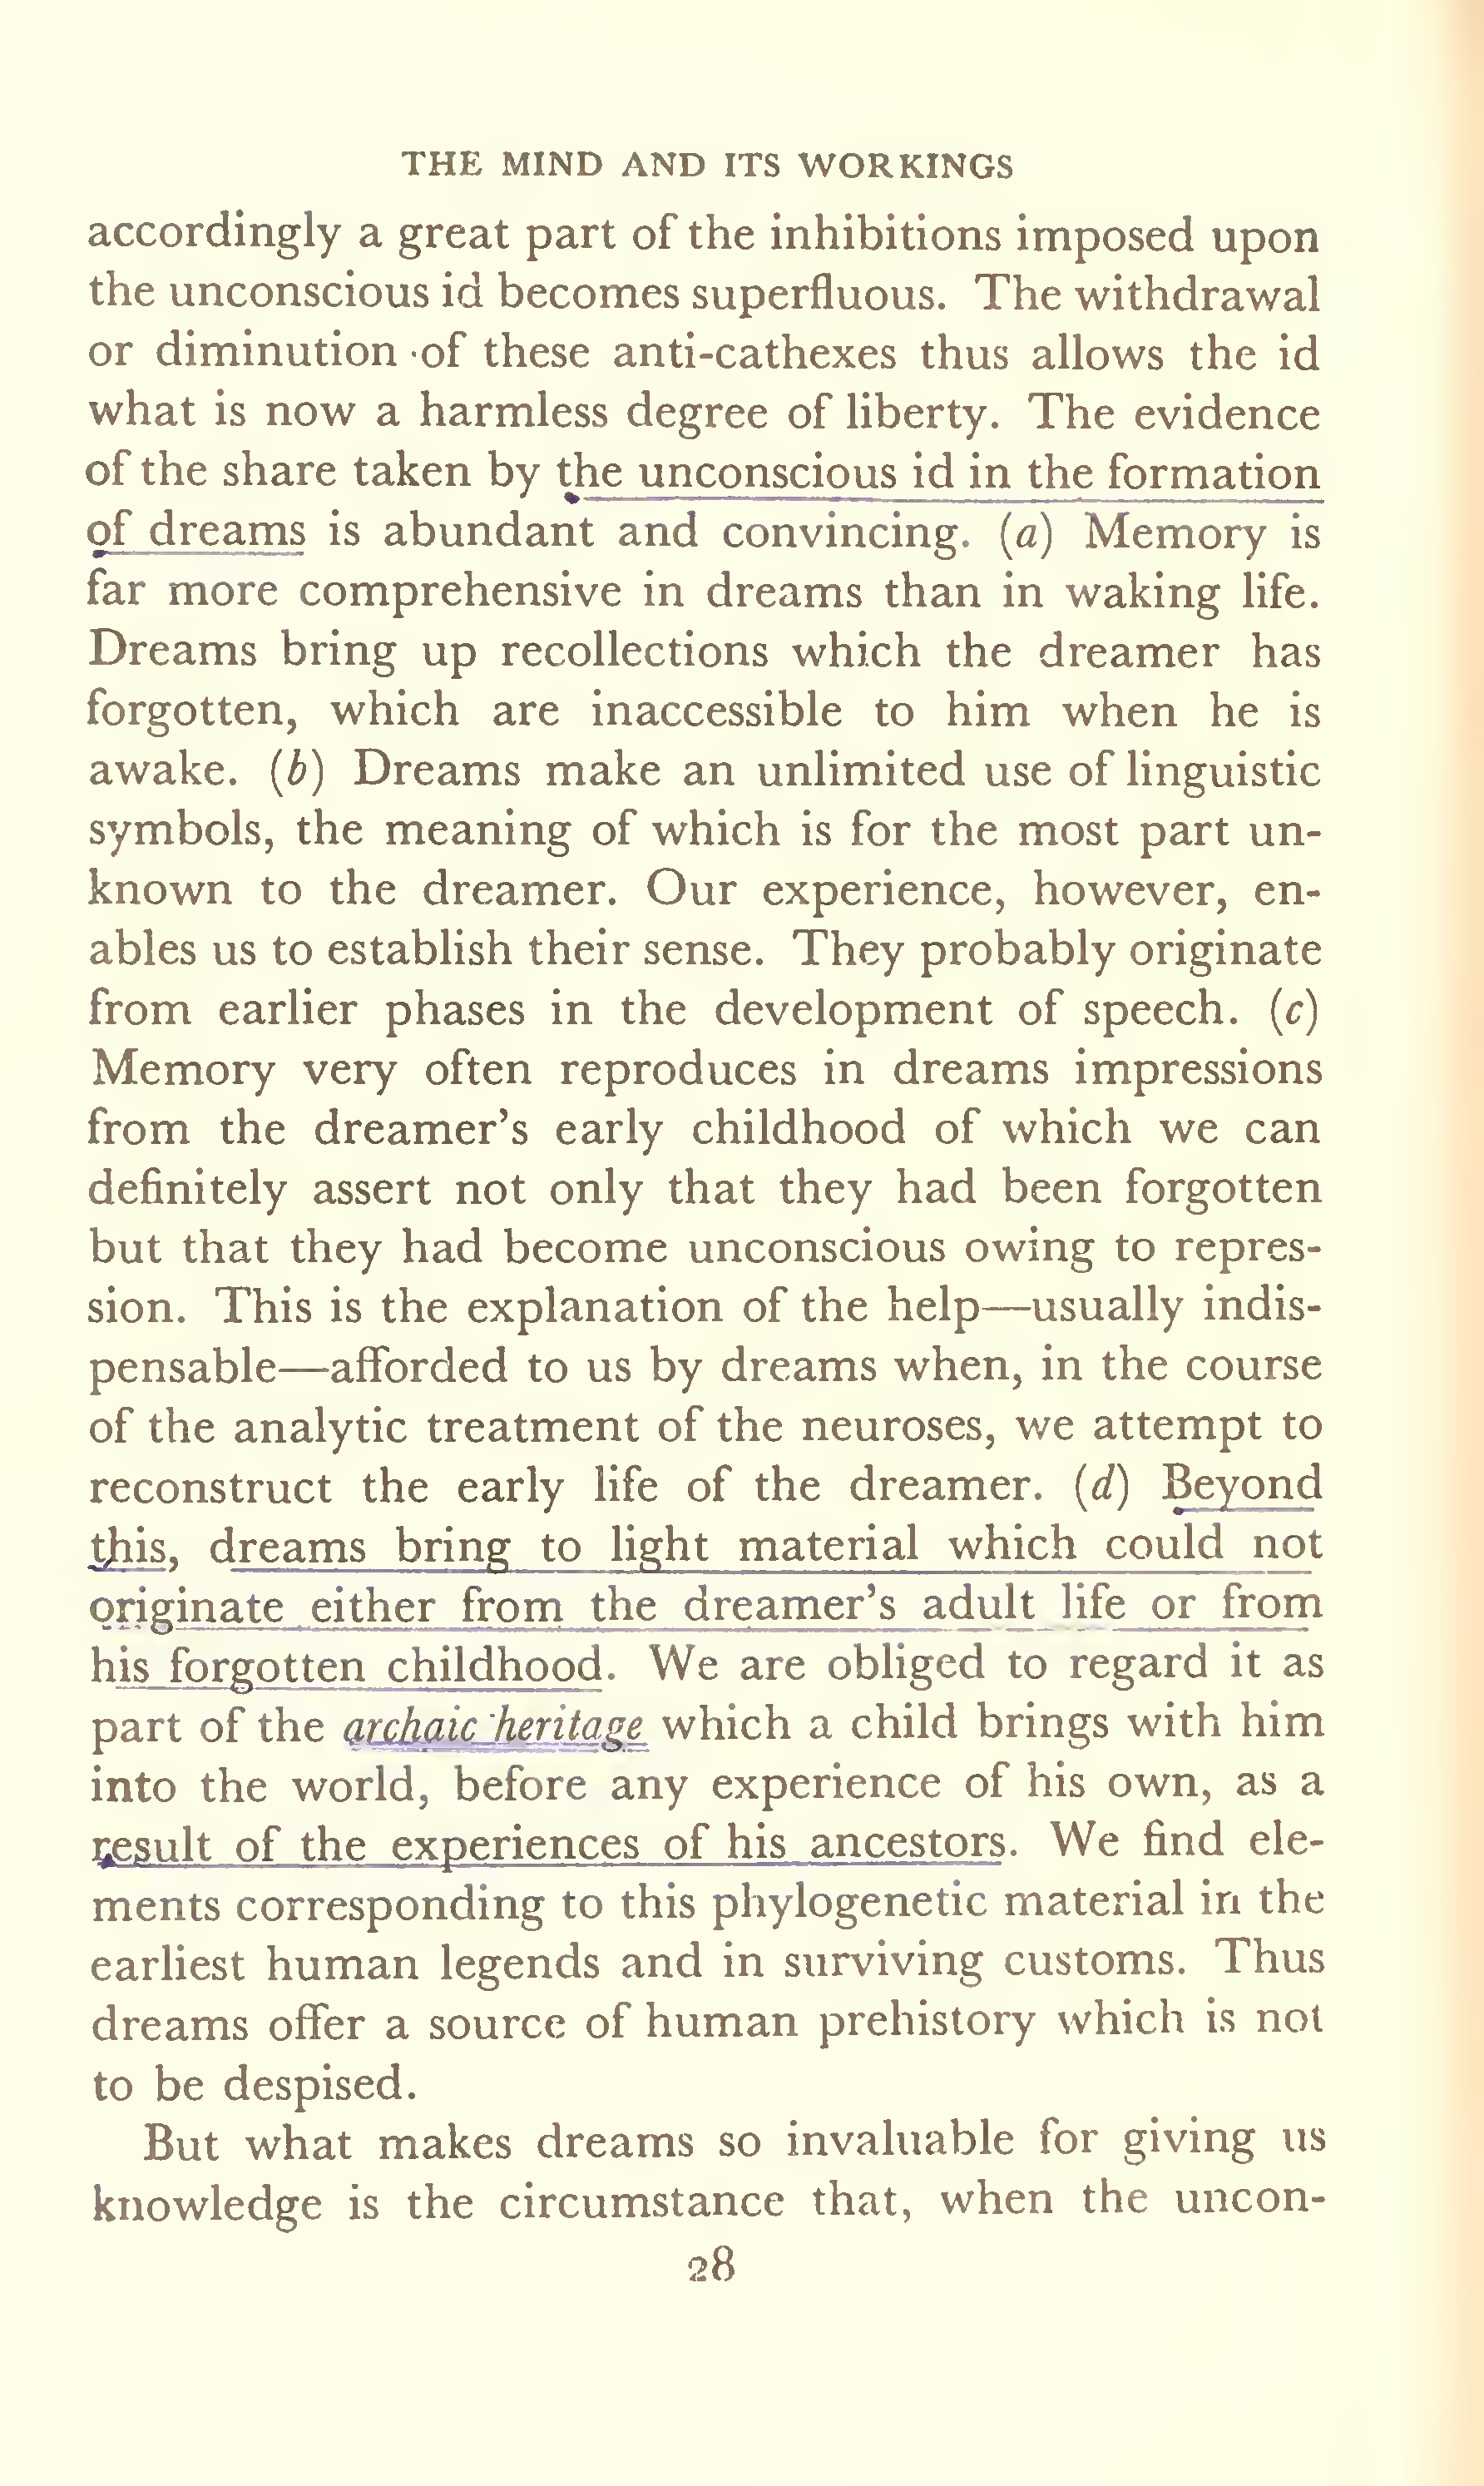 THE MIND AND ITS WORKINGS
accordingly a great part of the inhibitions imposed upon
the unconscious id becomes superfluous. The withdrawal
or diminution of these anti-cathexes thus allows the id
what is now a harmless degree of liberty. The evidence
of the share taken by the unconscious id in the formation
of dreams is abundant and convincing. (a) Memory is
far more comprehensive in dreams than in waking life.
Dreams bring up recollections which the dreamer has
forgotten, which are inaccessible to him when he is
awake. (b) Dreams make an unlimited use of linguistic
symbols, the meaning of which is for the most part un-
known to the dreamer. Our experience, however, en-
ables us to establish their sense. They probably originate
from earlier phases in the development of speech. (c)
Memory very often reproduces in dreams impressions
from the dreamer's early childhood of which we can
definitely assert not only that they had been forgotten
but that they had become unconscious owing to repres-
sion. This is the explanation of the help—usually indis-
pensable—afforded to us by dreams when, in the course
of the analytic treatment of the neuroses, we attempt to
reconstruct the early life of the dreamer. (d) Beyond
this, dreams bring to light material which could not
originate either from the dreamer's adult life or from
his forgotten childhood. We are obliged to regard it as
part of the archaic heritage which a child brings with him
into the world, before any experience of his own, as a
result of the experiences of his ancestors. We find ele-
ments corresponding to this phylogenetic material in the
earliest human legends and in surviving customs. Thus
dreams offer a source of human prehistory which is not
to be despised.
But what makes dreams so invaluable for giving us
knowledge is the circumstance that, when the uncon-
28